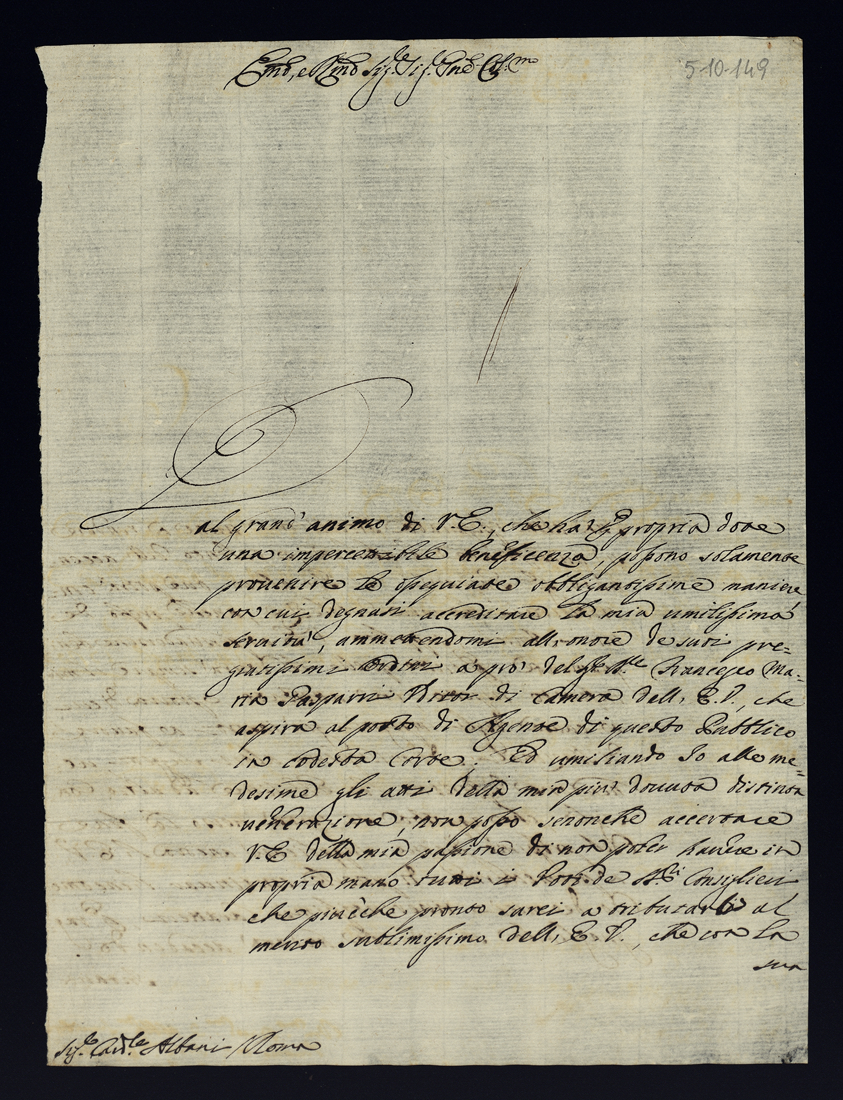 Em̃o, e Rm̃o Sig.re Sig.r Pne Col.mo
5-10-149
Dal grand' animo di V. E., che ha per propria dote
una impercettibile beneficenza, possono solamente
provenire le ossequiate obbligantissime maniere,
con cui degnasi accreditare la mia umilissima
servitù, ammettendomi all'onore de suoi pre=
giatissimi ordini a prò del Sig.r Ab.le Francesco Ma=
ria Gasparri di Camera dell'E. V., che
aspira al posto di Agente di questo Pubblico
in codesta Corte. Ed umiliando Io alle me=
desime gli atti della mia più dovuta distinta
venerazione, non posso senonche accertare
V. E. della mia passione di non poter havere in
propria mano tutti i Voti de Sig.ri Consiglieri
che più che pronto sarei a tributarli al
merito sublimissimo dell'E. V., che con la
sua
Sig.re Card.le Albani Roma